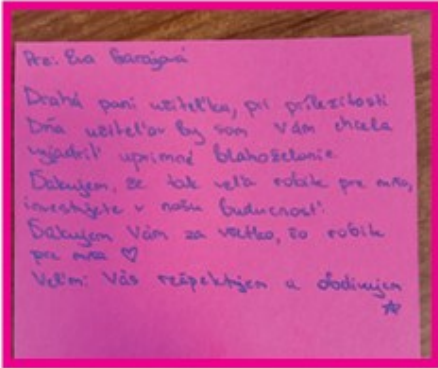 Pre: Eva Garajová
Drahá pani učiteľka, pri príležitosti
Dňa učiteľov by som Vám chcela
vyjadriť úprimné blahoželanie.
Ďakujem, že tak veľa robíte pre mňa,
investujete v našu budúcnosť.
Ďakujem Vám za všetko, čo robíte
pre mňa ♡
Veľmi Vás rešpektujem a obdivujem
☆